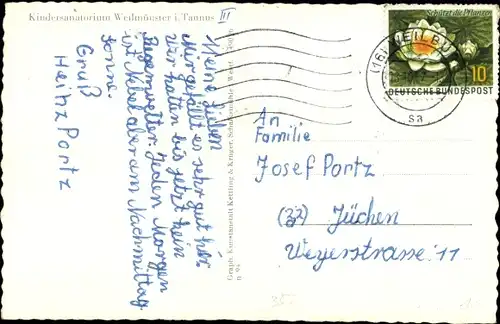 Kindersanatorium Weilmünster i. Taunus III
Meine Lieben
Mir gefällt es sehr gut hier.
Wir haten bis jetzt kein
Regenwetter. Jeden Morgen
ist Nebel aber am Nachmittag
Sonne.
Gruß
Heinz Portz
Graph. Kunstanstalt Kettling & Krüger, Schalksmühle
Schützt die Pflanzen
10
DEUTSCHE BUNDESPOST
(16) WEILBU
sa
An
Familie
Josef Portz
(22) Jüchen
Weyerstrasse 11